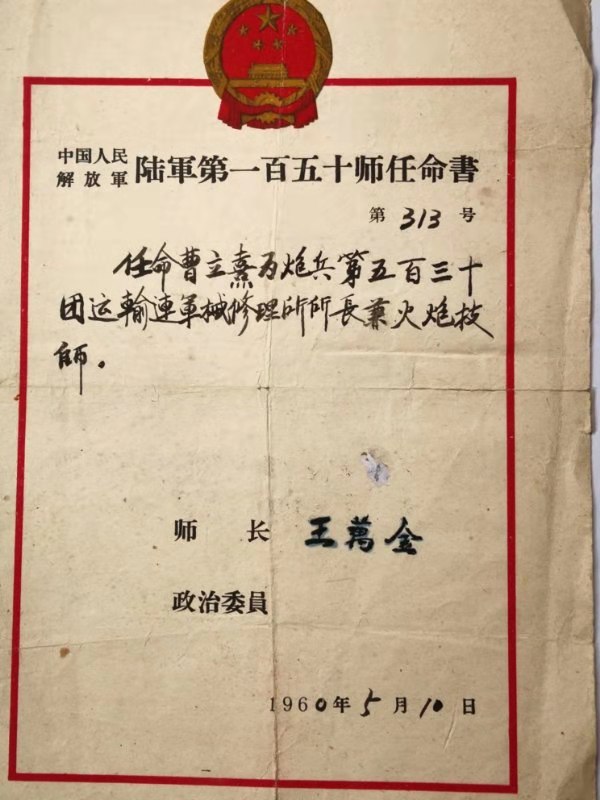 中国人民
解放軍
陆軍第一百五十师任命書
第 313 号
任命曹立熹为炮兵第五百三十
团运輸連軍械修理所所長兼火炮技
师。
师 长 王萬金
政治委員
1960年5月10日